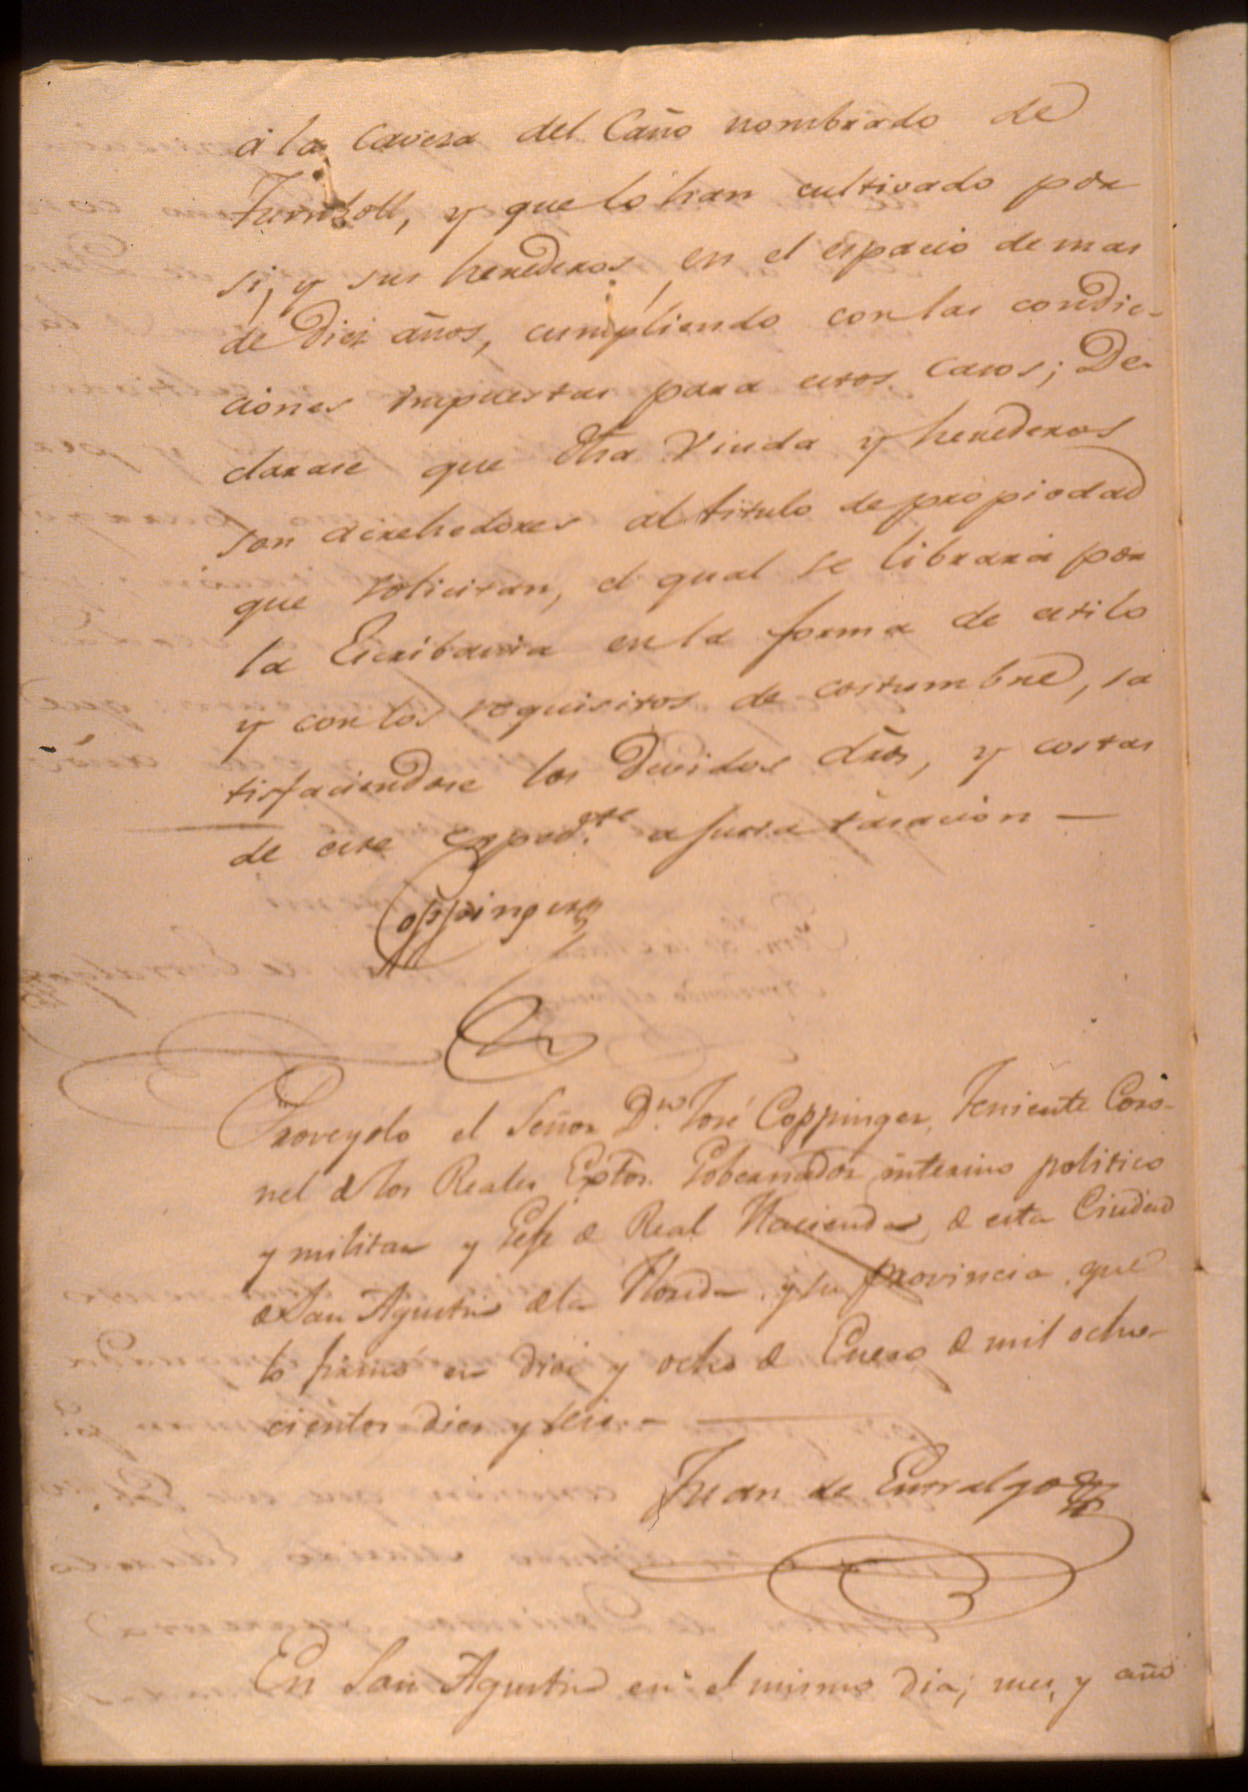 á la Caveza del Caño nombrado de
Turnboll, y que lo han cultivado por
si, y sus herederos, en el espacio de mas
de Diez años, cumpliendo con las condic-
ciones impuestas para estos casos; De-
clarase que dha Viuda y herederos
son acrehedores al titulo de propiedad
que solicitan, el qual se librará por
la Escribania en la forma de estilo
y con los requisitos de costumbre, sa
tisfaciendose los Devidos dros, y costas
de este Exped.te a justa tasacion —
Coppinger
Proveyolo el Señor D.n José Coppinger, Teniente Coro-
nel de los Reales Extos. Gobernador interino politico
y militar y Gefe de Real Hacienda de esta Ciudad
de San Agustin de la Florida y su provincia que
lo firmó en diez y ocho de Enero de mil ocho-
cientos diez y seis. —
Juan de Entralgo
En San Agustin en el mismo dia, mes, y año